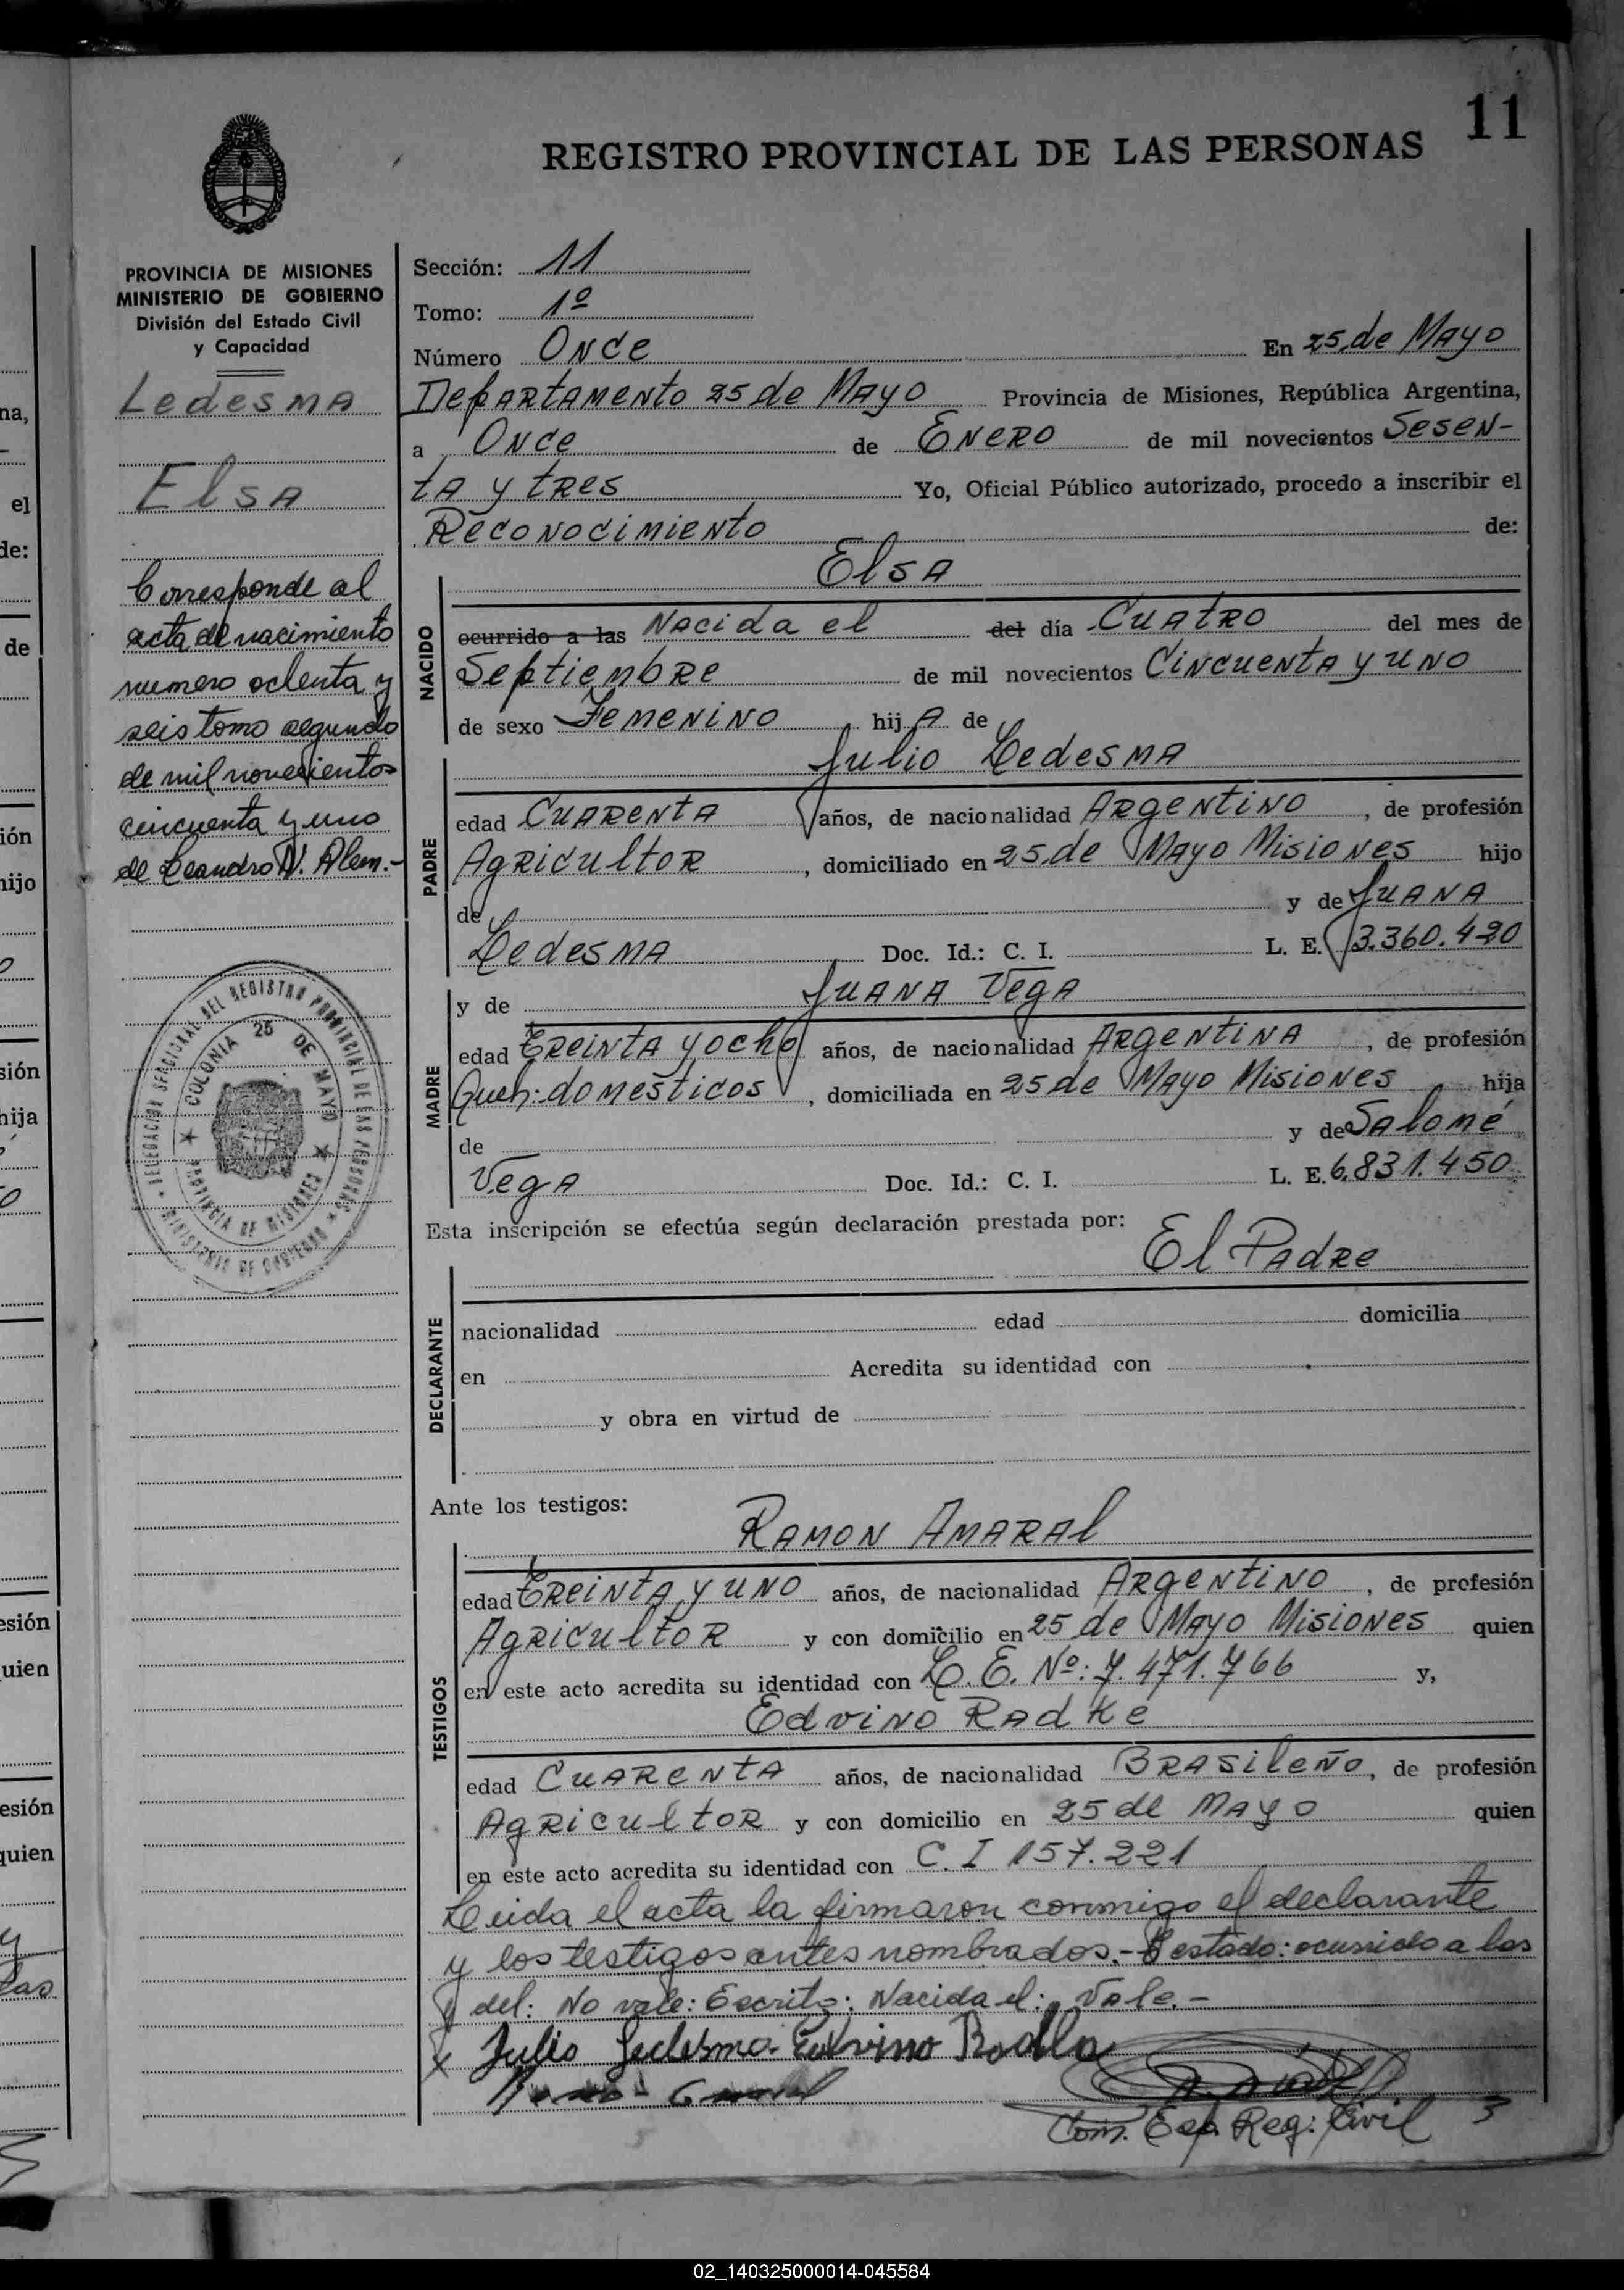 11
REGISTRO PROVINCIAL DE LAS PERSONAS
PROVINCIA DE MISIONES
MINISTERIO DE GOBIERNO
División del Estado Civil
y Capacidad
Ledesma
Elsa
Corresponde al
acta de nacimiento
numero ochenta y
seis tomo segundo
de mil novecientos
cincuenta y uno
de Leandro N. Alem.-
DELEGACION SECCIONAL DEL REGISTRO PROVINCIAL DE LAS PERSONAS
MINISTERIO DE GOBIERNO
COLONIA 25 DE MAYO
PROVINCIA DE MISIONES
Sección: 11
Tomo: 1º
Número Once En 25 de Mayo
Departamento 25 de Mayo Provincia de Misiones, República Argentina,
a Once de Enero de mil novecientos Sesen-
ta y tres Yo, Oficial Público autorizado, procedo a inscribir el
Reconocimiento de:
Elsa
NACIDO
ocurrido a las Nacida el del día Cuatro del mes de
Septiembre de mil novecientos Cincuenta y uno
de sexo Femenino hija de
Julio Ledesma
PADRE
edad Cuarenta años, de nacionalidad Argentino, de profesión
Agricultor, domiciliado en 25 de Mayo Misiones hijo
de y de Juana
Ledesma Doc. Id.: C. I. L. E. 3.360.420
y de Juana Vega
MADRE
edad Treinta y ocho años, de nacionalidad Argentina, de profesión
Queh: domésticos, domiciliada en 25 de Mayo Misiones hija
de y de Salomé
Vega Doc. Id.: C. I. L. E. 6.831.450
Esta inscripción se efectúa según declaración prestada por:
El Padre
DECLARANTE
nacionalidad edad domicilia
en Acredita su identidad con
y obra en virtud de
Ante los testigos:
Ramon Amaral
TESTIGOS
edad Treinta y uno años, de nacionalidad Argentino, de profesión
Agricultor y con domicilio en 25 de Mayo Misiones quien
en este acto acredita su identidad con L. E. Nº: 7.471.766 y,
Edvino Radke
edad Cuarenta años, de nacionalidad Brasileño, de profesión
Agricultor y con domicilio en 25 de Mayo quien
en este acto acredita su identidad con C. I 157.221
Leida el acta la firmaron conmigo el declarante
y los testigos antes nombrados.- Testado: ocurrido a las
y del: No vale: Escrito: Nacida el: Vale.-
x Julio Ledesma Edvino
Reg: Civil 3
02_140325000014-045584